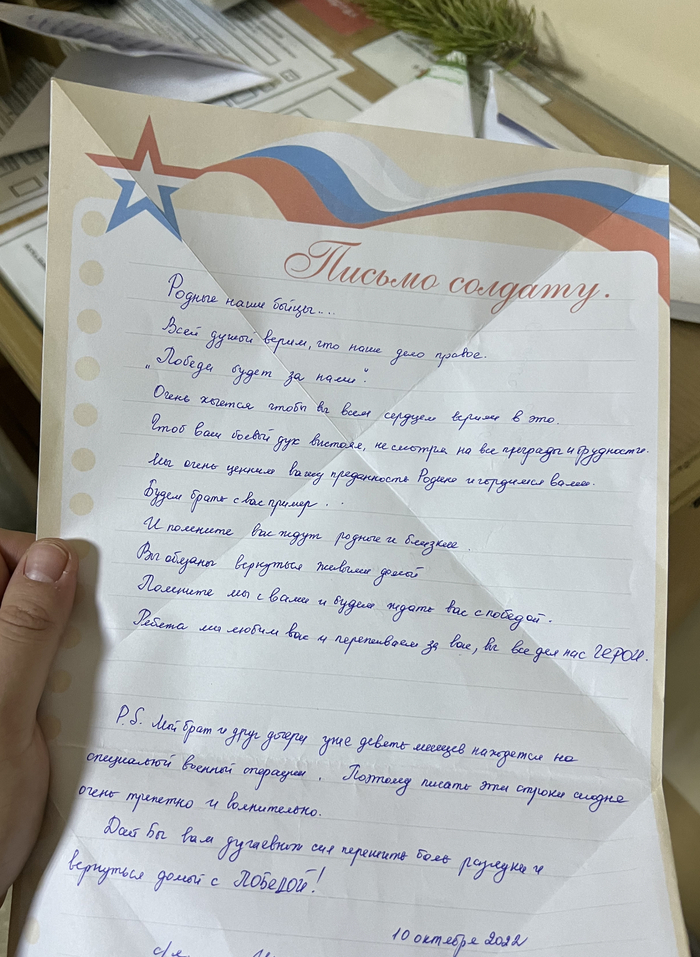 Письмо солдату.
Родные наши бойцы....
Всей душой верим, что наше дело правое.
"Победа будет за нами".
Очень хочется чтобы вы всем сердцем верили в это.
Чтоб ваш боевой дух выстоял, несмотря на все преграды и трудности.
Мы очень ценим вашу преданность Родине и гордимся вами.
Будем брать с вас пример . .
И помните вас ждут родные и близкие.
Вы обязаны вернуться живыми домой
Помните мы с вами и будем ждать вас с победой.
Ребята мы любим вас и переживаем за вас, вы все для нас ГЕРОИ.
P.S. Мой брат и друг дочери уже девять месяцев находятся на
специальной военной операции. Поэтому писать эти строки сегодня
очень трепетно и волнительно.
Дай Бог вам душевных сил пережить боль разлуки и
вернуться домой с ПОБЕДОЙ!
10 октября 2022